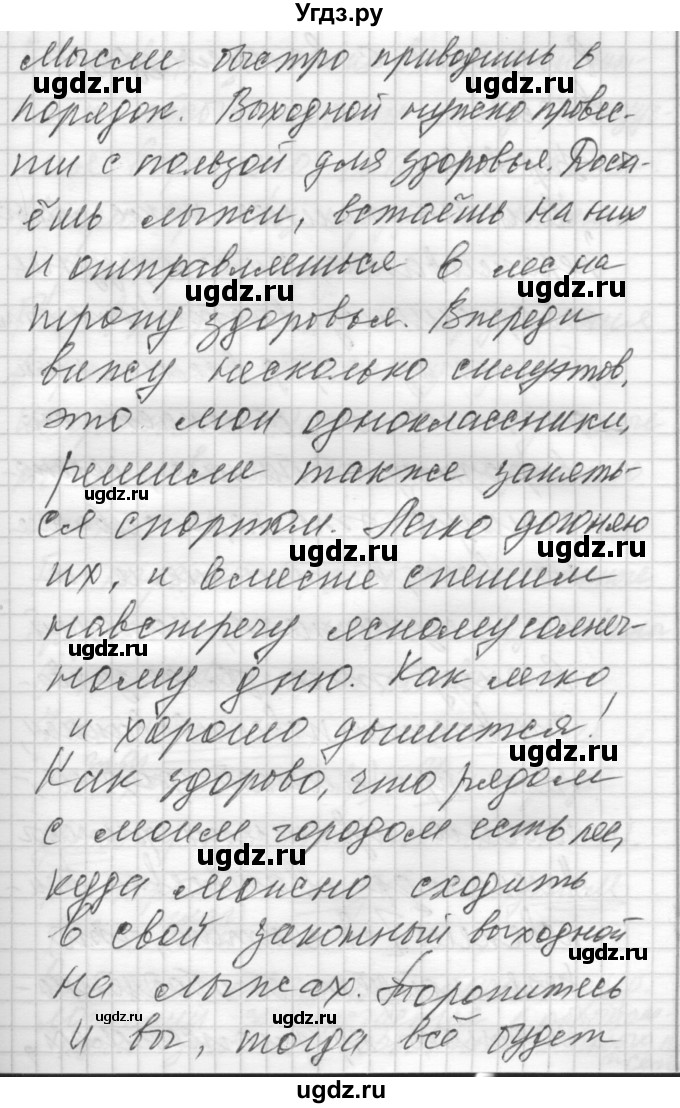 Угдз.ру
Мысли быстро приводишь в
ugdz.ru ugdz.ru
порядок. Выходной нужно провес-
ти с пользой для здоровья. Доста-
ёшь лыжи, встаёшь на них
и отправляешься в лес на
ugdz.ru ugdz.ru
тропу здоровья. Впереди
вижу несколько силуэтов,
это мои одноклассники,
решили также занять-
ugdz.ru
ся спортом. Легко догоняю
ugdz.ru ugdz.ru
их, и вместе спешим
навстречу ясному солнеч-
ugdz.ru
ному дню. Как легко
и хорошо дышится!
ugdz.ru
Как здорово, что рядом
с моим городом есть лес,
ugdz.ru
куда можно сходить
в свой законный выходной
ugdz.ru
на лыжах. Торопитесь
ugdz.ru ugdz.ru
и вы, тогда всё будет
ugdz.ru